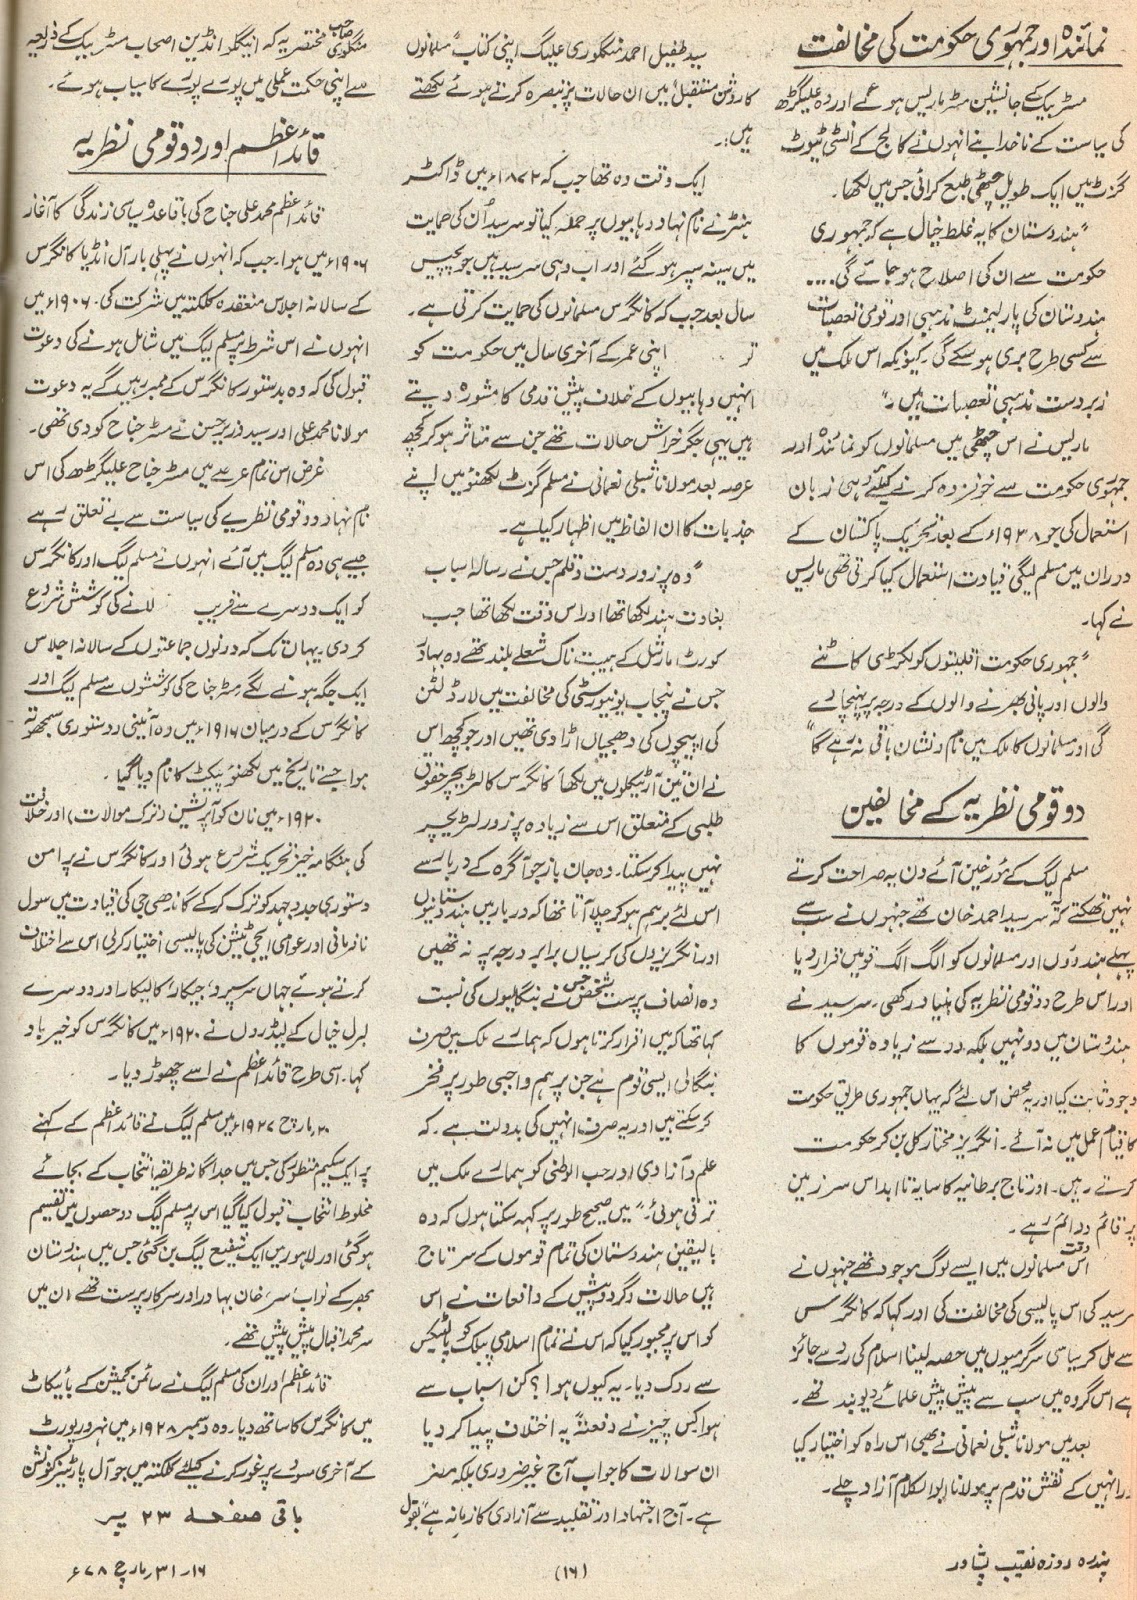 نمائندہ اور جمہوری حکومت کی مخالفت
مسٹر بیک کے جانشین مسٹر ماریس ہوئے اور وہ علیگڑھ
کی سیاست کے ناخدا بنے انہوں نے کالج کے انسٹی ٹیوٹ
گزٹ میں ایک طویل چٹھی طبع کرائی جس میں لکھا۔
"ہندوستان کا یہ غلط خیال ہے کہ جمہوری
حکومت سے ان کی اصلاح ہو جائے گی....
ہندوستان کی پارلیمنٹ مذہبی اور قومی تعصبات
سے کسی طرح بری ہو سکے گی۔ کیونکہ اس ملک میں
زبردست مذہبی تعصبات ہیں۔"
ماریس نے اس چٹھی میں مسلمانوں کو نمائندہ اور
جمہوری حکومت سے خوفزدہ کرنے کیلئے وہی زبان
استعمال کی جو ۱۹۳۸ء کے بعد تحریک پاکستان کے
دوران میں مسلم لیگی قیادت استعمال کیا کرتی تھی ماریس
نے کہا۔
"جمہوری حکومت اقلیتوں کو لکڑی کاٹنے
والوں اور پانی بھرنے والوں کے درجہ پر پہنچا دے
گی اور مسلمانوں کا ملک میں نام و نشان باقی نہ رہے گا"
دو قومی نظریہ کے مخالفین
مسلم لیگ کے مؤرخین آئے دن یہ صراحت کرتے
نہیں تھکتے کہ سرسید احمد خان تھے جنہوں نے سب سے
پہلے ہندوؤں اور مسلمانوں کو الگ الگ قومیں قرار دیا
اور اس طرح دو قومی نظریہ کی بنیاد رکھی۔ سرسید نے
ہندوستان میں دو نہیں بلکہ دو سے زیادہ قوموں کا
وجود ثابت کیا اور یہ محض اس لئے کہ یہاں جمہوری طریق حکومت
کا قیام عمل میں نہ آئے۔ انگریز مختار کل بن کر حکومت
کرتے رہیں۔ اور تاج برطانیہ کا سایہ تا ابد اس سرزمین
پر قائم و دائم رہے۔
اس وقت مسلمانوں میں ایسے لوگ موجود تھے جنہوں نے
سرسید کی اس پالیسی کی مخالفت کی اور کہا کہ کانگرس
سے مل کر سیاسی سرگرمیوں میں حصہ لینا اسلام کی رو سے جائز
ہے اس گروہ میں سب سے پیش پیش علمائے دیوبند تھے۔
بعد میں مولانا شبلی نعمانی نے بھی اس راہ کو اختیار کیا
۔ انہیں کے نقش قدم پر مولانا ابوالکلام آزاد چلے۔
سید طفیل احمد منگلوری علیگ اپنی کتاب "مسلمانوں
کا روشن مستقبل" میں ان حالات پر تبصرہ کرتے ہوئے لکھتے
ہیں:۔
ایک وقت وہ تھا جب کہ ۱۸۷۲ء میں ڈاکٹر
ہنٹر نے نام نہاد وہابیوں پر حملہ کیا تو سرسید اُن کی حمایت
میں سینہ سپر ہو گئے اور اب وہی سرسید ہیں جو پچیس
سال بعد جب کہ کانگرس مسلمانوں کی حمایت کرتی ہے۔
تو اپنی عمر کے آخری سال میں حکومت کو
انہیں وہابیوں کے خلاف پیش قدمی کا مشورہ دیتے
ہیں یہی جگر خراش حالات تھے جن سے متاثر ہو کر کچھ
عرصہ بعد مولانا شبلی نعمانی نے مسلم گزٹ لکھنؤ میں اپنے
جذبات کا ان الفاظ میں اظہار کیا ہے۔
"وہ پرزور دست و قلم جس نے رسالہ اسباب
بغاوت ہند لکھا تھا اور اس وقت لکھا تھا جب
کورٹ مارشل کے ہیبت ناک شعلے بلند تھے وہ بہادر
جس نے پنجاب یونیورسٹی کی مخالفت میں لارڈ لٹن
کی اسپیچوں کی دھجیاں اڑا دی تھیں اور جو کچھ اس
نے ان تین آرٹیکلوں میں لکھا کانگرس کا لٹریچر حقوق
طلبی کے متعلق اس سے زیادہ پرزور لٹریچر
نہیں پیدا کر سکتا۔ وہ جان باز جو آگرہ کے دربار سے
اس لئے برہم ہو کر چلا آتا تھا کہ دربار میں ہندوستانیوں
اور انگریزوں کی کرسیاں برابر درجہ پر نہ تھیں
وہ انصاف پرست شخص جس نے بنگالیوں کی نسبت
کہا تھا کہ میں اقرار کرتا ہوں کہ ہمارے ملک میں صرف
بنگالی ایسی قوم ہے جن پر ہم واجبی طور پر فخر
کر سکتے ہیں اور یہ صرف انہیں کی بدولت ہے۔ کہ
علم و آزادی اور حب الوطنی کو ہمارے ملک میں
ترقی ہوئی۔" میں صحیح طور پر کہہ سکتا ہوں کہ وہ
بالیقین ہندوستان کی تمام قوموں کے سرتاج
ہیں حالات و گردوپیش کے واقعات نے اس
کو اس پر مجبور کیا کہ اس نے تمام اسلامی پبلک کو پالیٹکس
سے روک دیا۔ یہ کیوں ہوا؟ کن اسباب سے
ہوا کس چیز نے دفعتہً یہ اختلاف پیدا کر دیا
ان سوالات کا جواب آج غیر ضروری بلکہ مضر
ہے۔ آج اجتہاد اور تقلید سے آزادی کا زمانہ ہے" بقول
منگلوری صاحب مختصر یہ کہ اینگلو انڈین اصحاب مسٹر بیک کے ذریعہ
سے اپنی حکمت عملی میں پورے پورے کامیاب ہوئے۔
قائداعظم اور دو قومی نظریہ
قائداعظم محمد علی جناح کی باقاعدہ سیاسی زندگی کا آغاز
۱۹۰۶ء میں ہوا۔ جب کہ انہوں نے پہلی بار آل انڈیا کانگرس
کے سالانہ اجلاس منعقدہ کلکتہ میں شرکت کی۔ ۱۹۰۶ء میں
انہوں نے اس شرط پر مسلم لیگ میں شامل ہونے کی دعوت
قبول کی کہ وہ بدستور کانگرس کے ممبر رہیں گے یہ دعوت
مولانا محمد علی اور سید وزیر حسن نے مسٹر جناح کو دی تھی۔
غرض اس تمام عرصے میں مسٹر جناح علیگڑھ کی اس
نام نہاد دو قومی نظریے کی سیاست سے بے تعلق رہے
جیسے ہی وہ مسلم لیگ میں آئے انہوں نے مسلم لیگ اور کانگرس
کو ایک دوسرے سے قریب لانے کی کوشش شروع
کر دی۔ یہاں تک کہ دونوں جماعتوں کے سالانہ اجلاس
ایک جگہ ہونے لگے مسٹر جناح کی کوششوں سے مسلم لیگ اور
کانگرس کے درمیان ۱۹۱۶ء میں وہ آئینی و دستوری سمجھوتہ
ہوا جسے تاریخ میں لکھنؤ پیکٹ کا نام دیا گیا۔
۱۹۲۰ء میں نان کوآپریشن (ترک موالات) اور خلافت
کی ہنگامہ خیز تحریک شروع ہوئی اور کانگرس نے پرامن
دستوری جدوجہد کو ترک کر کے گاندھی جی کی قیادت میں سول
نافرمانی اور عوامی ایجی ٹیشن کی پالیسی اختیار کر لی اس سے اختلاف
کرتے ہوئے جہاں سر سپرو، جیکار، کالیکار اور دوسرے
لبرل خیال کے لیڈروں نے ۱۹۲۰ء میں کانگرس کو خیر باد
کہا۔ اسی طرح قائداعظم نے اسے چھوڑ دیا۔
۲۰ مارچ ۱۹۲۷ء میں مسلم لیگ نے قائداعظم کے کہنے
پر ایک سکیم منظور کی جس میں جداگانہ طریقہ انتخاب کے بجائے
مخلوط انتخاب قبول کیا گیا اس پر مسلم لیگ دو حصوں میں تقسیم
ہو گئی اور لاہور میں ایک شفیع لیگ بن گئی جس میں ہندوستان
بھر کے نواب، سر، خان بہادر اور سرکار پرست تھے ان میں
سر محمد اقبال پیش پیش تھے۔
قائداعظم اور ان کی مسلم لیگ نے سائمن کمیشن کے بائیکاٹ
میں کانگرس کا ساتھ دیا۔ وہ دسمبر ۱۹۲۸ء میں نہرو رپورٹ
کے آخری مسودے پر غور کرنے کیلئے کلکتہ میں جو آل پارٹیز کنونشن
باقی صفحہ ۲۳ پر
پندرہ روزہ نقیب پشاور
(۱۶)
۱۶۔۳۱ مارچ ۷۸ء